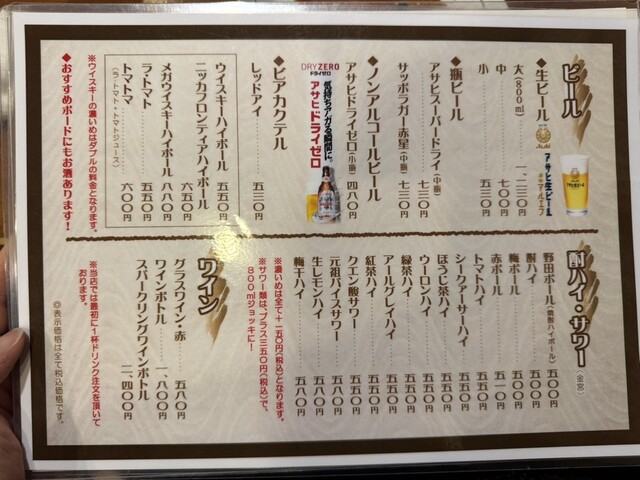 ビール
◆生ビール
Asahi
アサヒ生ビール
通称マルエフ
大(800ml) 一、二三〇円
中 七〇〇円
小 五三〇円
◆瓶ビール
アサヒスーパードライ(中瓶) 七三〇円
サッポロラガー赤星(中瓶) 七三〇円
◆ノンアルコールビール
アサヒドライゼロ(小瓶) 四八〇円
DRY ZERO
ドライゼロ
気持ちアガる瞬間に。
アサヒドライゼロ
◆ビアカクテル
レッドアイ 五三〇円
ウイスキーハイボール 五五〇円
ニッカフロンティアハイボール 六五〇円
メガウイスキーハイボール 八八〇円
ラ・トマト 五五〇円
トマトマ 六〇〇円
(ラ・トマト+トマトジュース)
※ウイスキーの濃いめはダブルの料金となります。
◆おすすめボードにもお酒あります!
酎ハイ・サワー(金宮)
野田ボール(焼酎ハイボール) 五〇〇円
酎ハイ 五〇〇円
梅ボール 五〇〇円
赤ボール 五一〇円
トマトハイ 五五〇円
シークァーサーハイ 五五〇円
ほうじ茶ハイ 五五〇円
ウーロンハイ 五五〇円
緑茶ハイ 五五〇円
アールグレイハイ 五五〇円
紅茶ハイ 五五〇円
クエン酸サワー 五五〇円
元祖バイスサワー 五五〇円
生レモンハイ 五八〇円
梅干ハイ 五八〇円
※濃いめは全て+一五〇円(税込)となります。
※サワー類は、プラス三五〇円(税込)で、
800mlジョッキに!
ワイン
グラスワイン・赤 五八〇円
ワインボトル 一、八〇〇円
スパークリングワインボトル 二、四〇〇円
※当店では最初に1杯ドリンク注文を頂いて
おります。
◎表示価格は全て税込価格です。